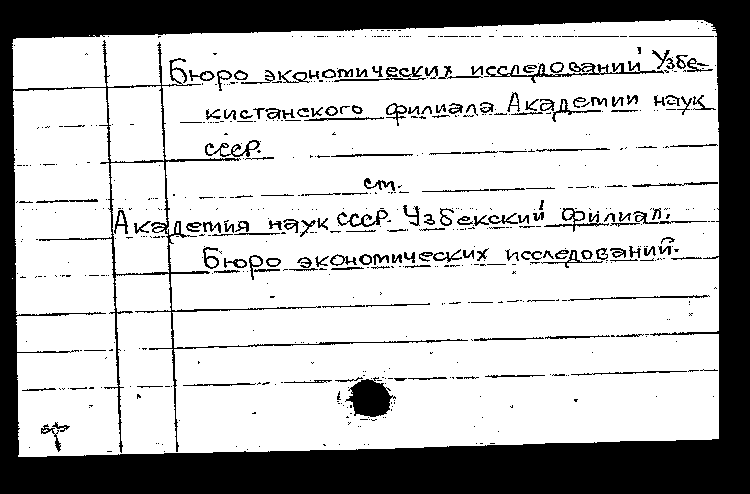 Бюро экономических исследований Узбе-
кистанского филиала Академии наук
СССР.
см.
Академия наук СССР. Узбекский филиал.
Бюро экономических исследований.